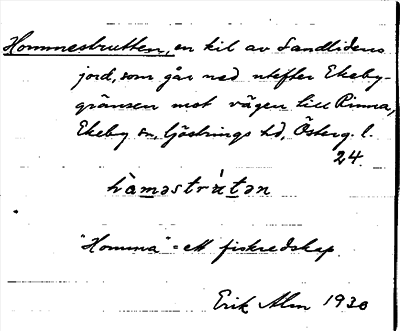 Hommestrutten, en kil av Sandlidens
jord, som går ned utefter Ekeby-
gränsen mot vägen till Rinna,
Ekeby sn, Göstrings hd, Österg. l.
24.
hòmastrùtan
"Homma" = ett fiskredskap.
Erik Alm 1930